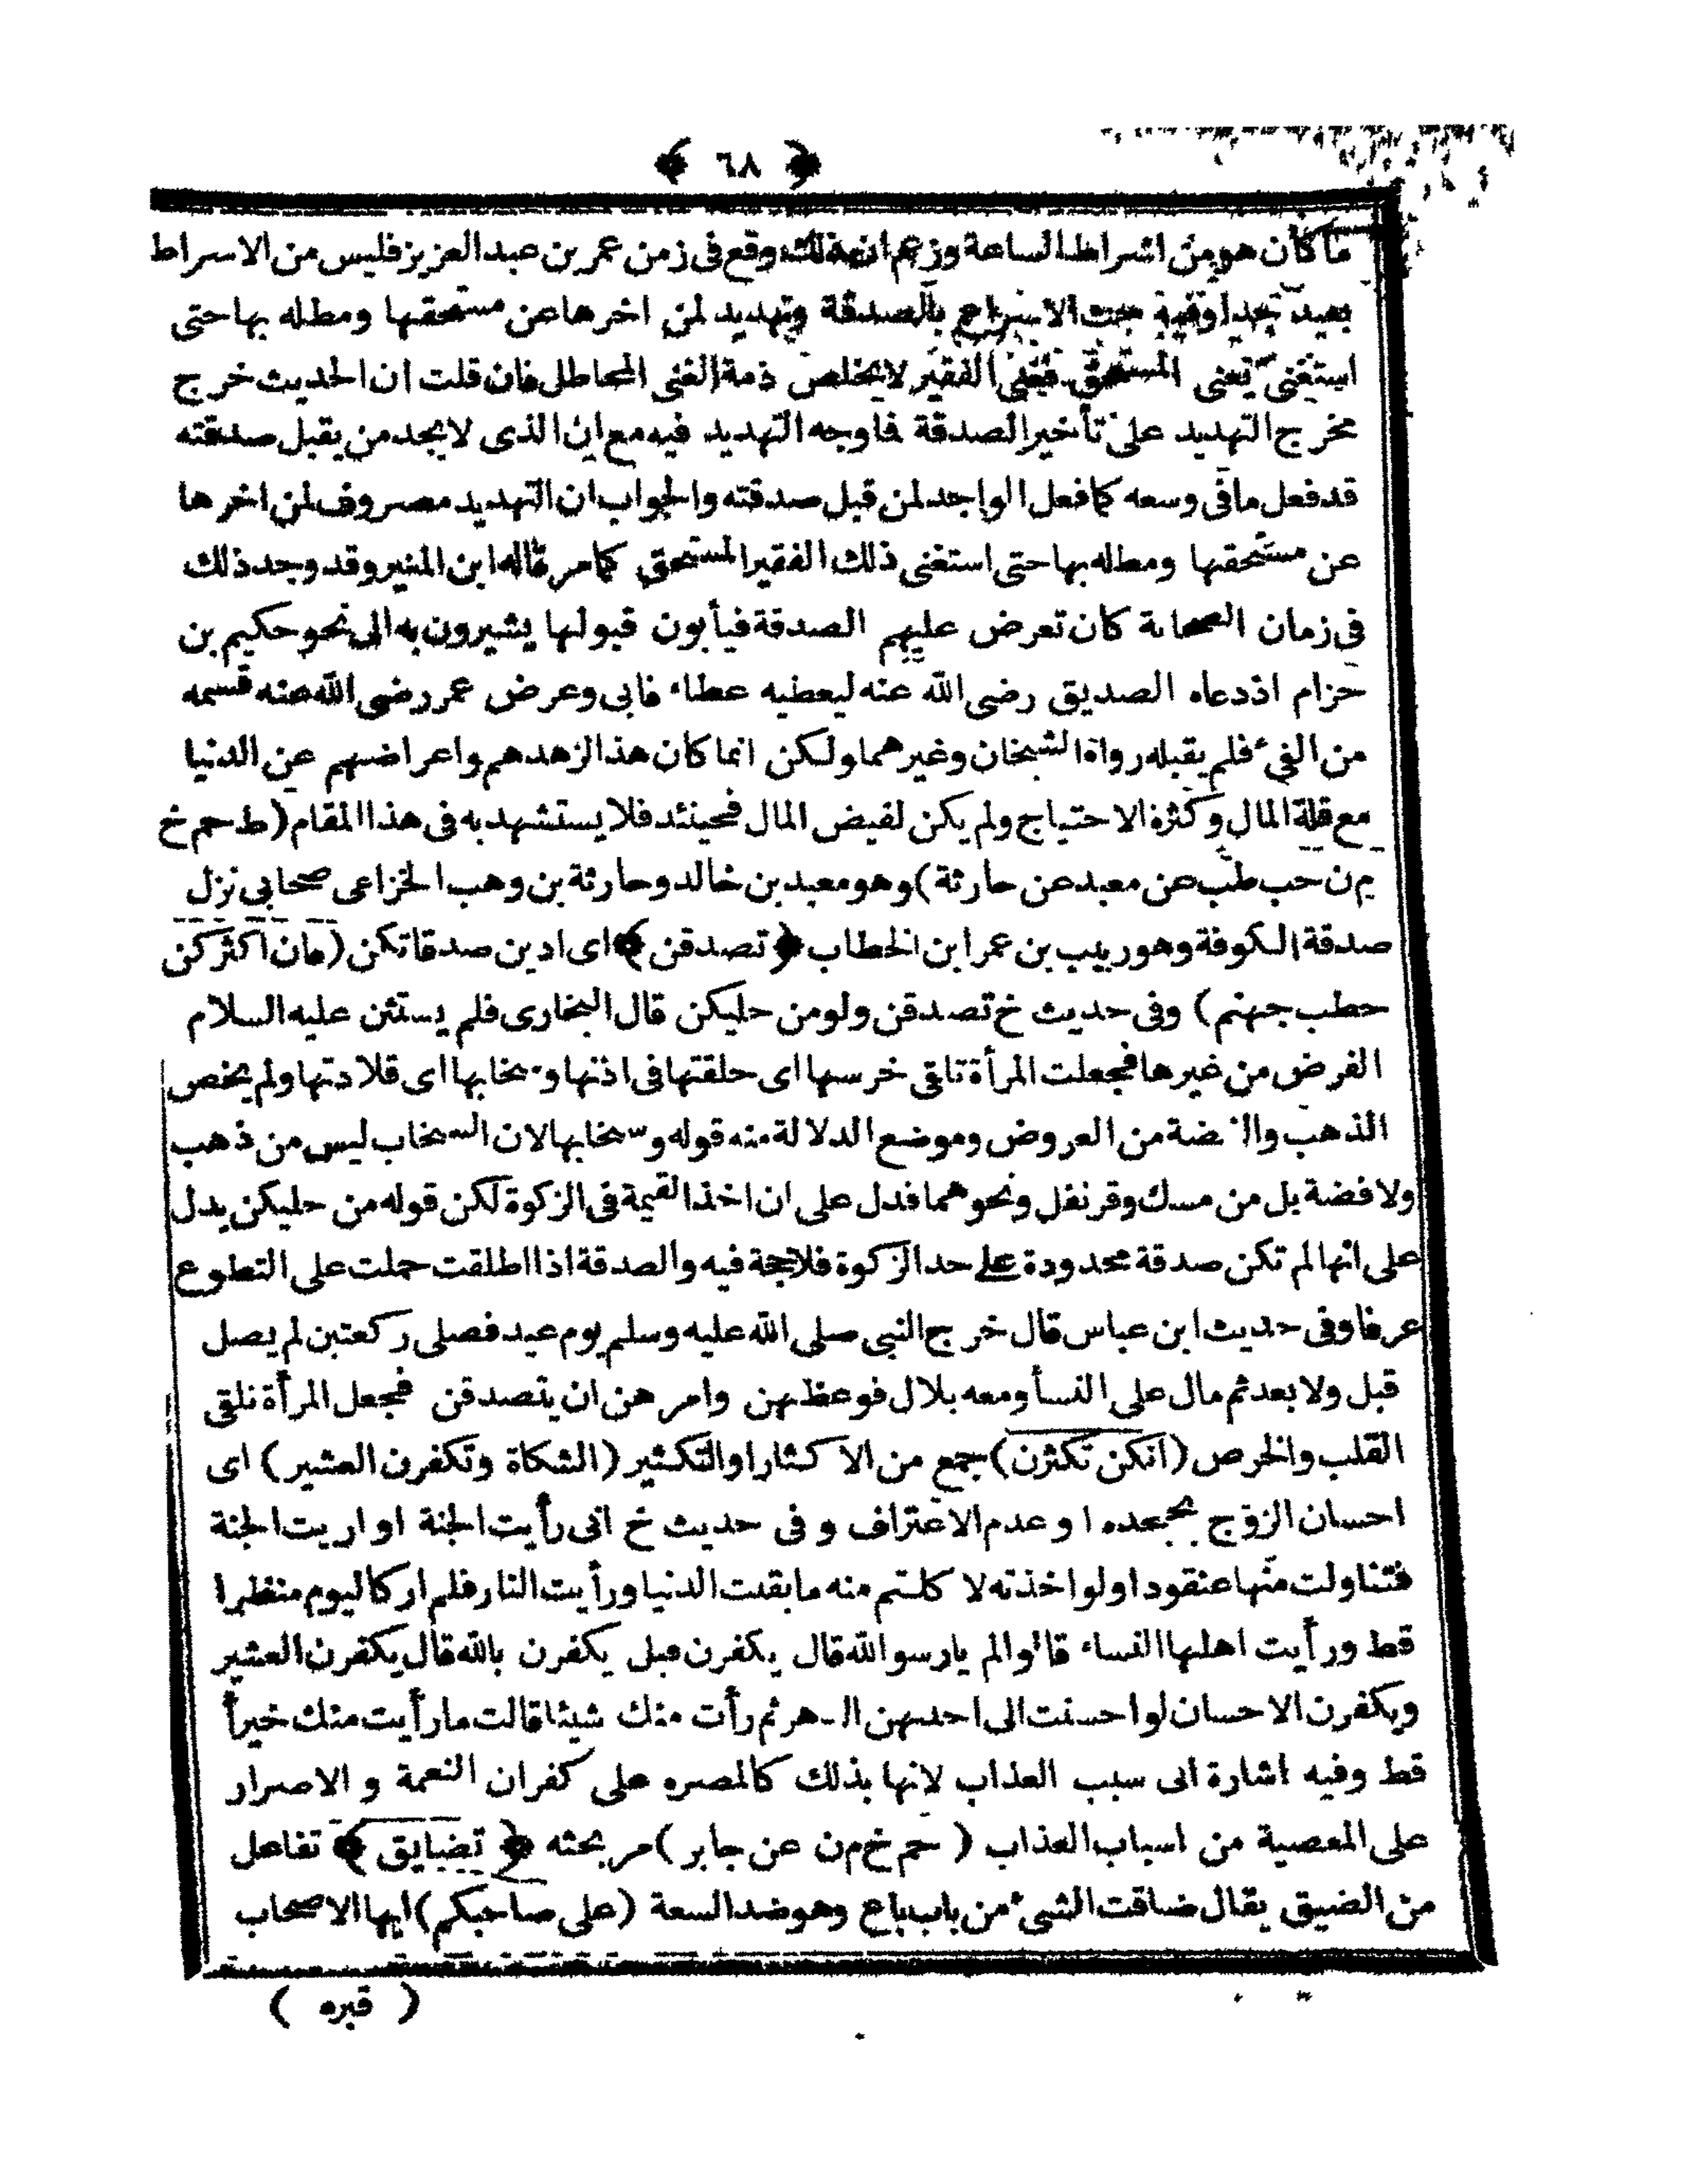 ﴿ ٦٨ ﴾
ما كان هو من اشراط الساعة وزعم ان ذلك وقع فى زمن عمر بن عبد العزيز فليس من الاسراط
بعيد جدا وفيه حث الاسراع بالصدقة وتهديد لمن اخرها عن مستحقها ومطله بها حتى
استغنى يعنى المستحق فغنى الفقير لا يخلص ذمة الغنى المماطل فان قلت ان الحديث خرج
مخرج التهديد على تأخير الصدقة فاوجه التهديد فيه مع ان الذى لا يجد من يقبل صدقته
قد فعل ما فى وسعه كما فعل الواجد لمن قبل صدقته والجواب ان التهديد مصروف لمن اخرها
عن مستحقها ومطله بها حتى استغنى ذلك الفقير المستحق كما مر قاله ابن المنير وقد وجد ذلك
فى زمان الصحابة كان تعرض عليهم الصدقة فيأبون قبولها يشيرون به الى نحو حكيم بن
حزام اذ دعاه الصديق رضى الله عنه ليعطيه عطاء فابى وعرض عمر رضى الله عنه قسمه
من الفئ فلم يقبله رواة الشيخان وغيرهما ولكن انما كان هذا لزهدهم واعراضهم عن الدنيا
مع قلة المال وكثرة الاحتياج ولم يكن لفيض المال فحينئد فلا يستشهد به فى هذا المقام (ط حم خ
م ن حب طب عن معبد عن حارثة) وهو معبد بن خالد وحارثة بن وهب الخزاعى صحابى نزل
صدقة الكوفة وهو ربيب بن عمر ابن الخطاب ﴿تصدقن﴾ اى ادين صدقاتكن (فان اكثركن
حطب جهنم) وفى حديث خ تصدقن ولو من حليكن قال البخارى فلم يستثن عليه السلام
الفرض من غيرها فجعلت المرأة تلقى خرسها اى حلقتها فى اذنها وسخابها اى قلادتها ولم يخص
الذهب والفضة من العروض وموضع الدلالة منه قوله وسخابها لان السخاب ليس من ذهب
ولا فضة بل من مسك وقرنفل ونحوهما فدل على ان اخذ القيمة فى الزكوة لكن قوله من حليكن يدل
على انها لم تكن صدقة محدودة على حد الزكوة فلا حجة فيه والصدقة اذا اطلقت حملت على التطوع
عرفا وفى حديث ابن عباس قال خرج النبى صلى الله عليه وسلم يوم عيد فصلى ركعتين لم يصل
قبل ولا بعد ثم مال على النسأ ومعه بلال فوعظهن وامرهن ان يتصدقن فجعل المرأة تلقى
القلب والخرص (انكن تكثرن) جمع من الاكثار او التكثير (الشكاة وتكفرن العشير) اى
احسان الزوج بجحده او عدم الاعتراف وفى حديث خ انى رأيت الجنة او اريت الجنة
فتناولت منها عنقودا ولو اخذته لا كلتم منه ما بقيت الدنيا ورأيت النار فلم ار كاليوم منظرا
قط ورأيت اهلها النساء قالوا لم يا رسو الله قال يكفرن قيل يكفرن بالله قال يكفرن العشير
ويكفرن الاحسان لو احسنت الى احديهن الدهر ثم رأت منك شيئا قالت ما رأيت منك خيرأ
قط وفيه اشارة الى سبب العذاب لانها بذلك كالمصره على كفران النعمة و الاصرار
على المعصية من اسباب العذاب (حم خ م ن عن جابر) مر بحثه ﴿تضايق﴾ تفاعل
من الضيق يقال ضاقت الشئ من باب باع وهو ضد السعة (على صاحبكم) ايها الاصحاب
( قبره )